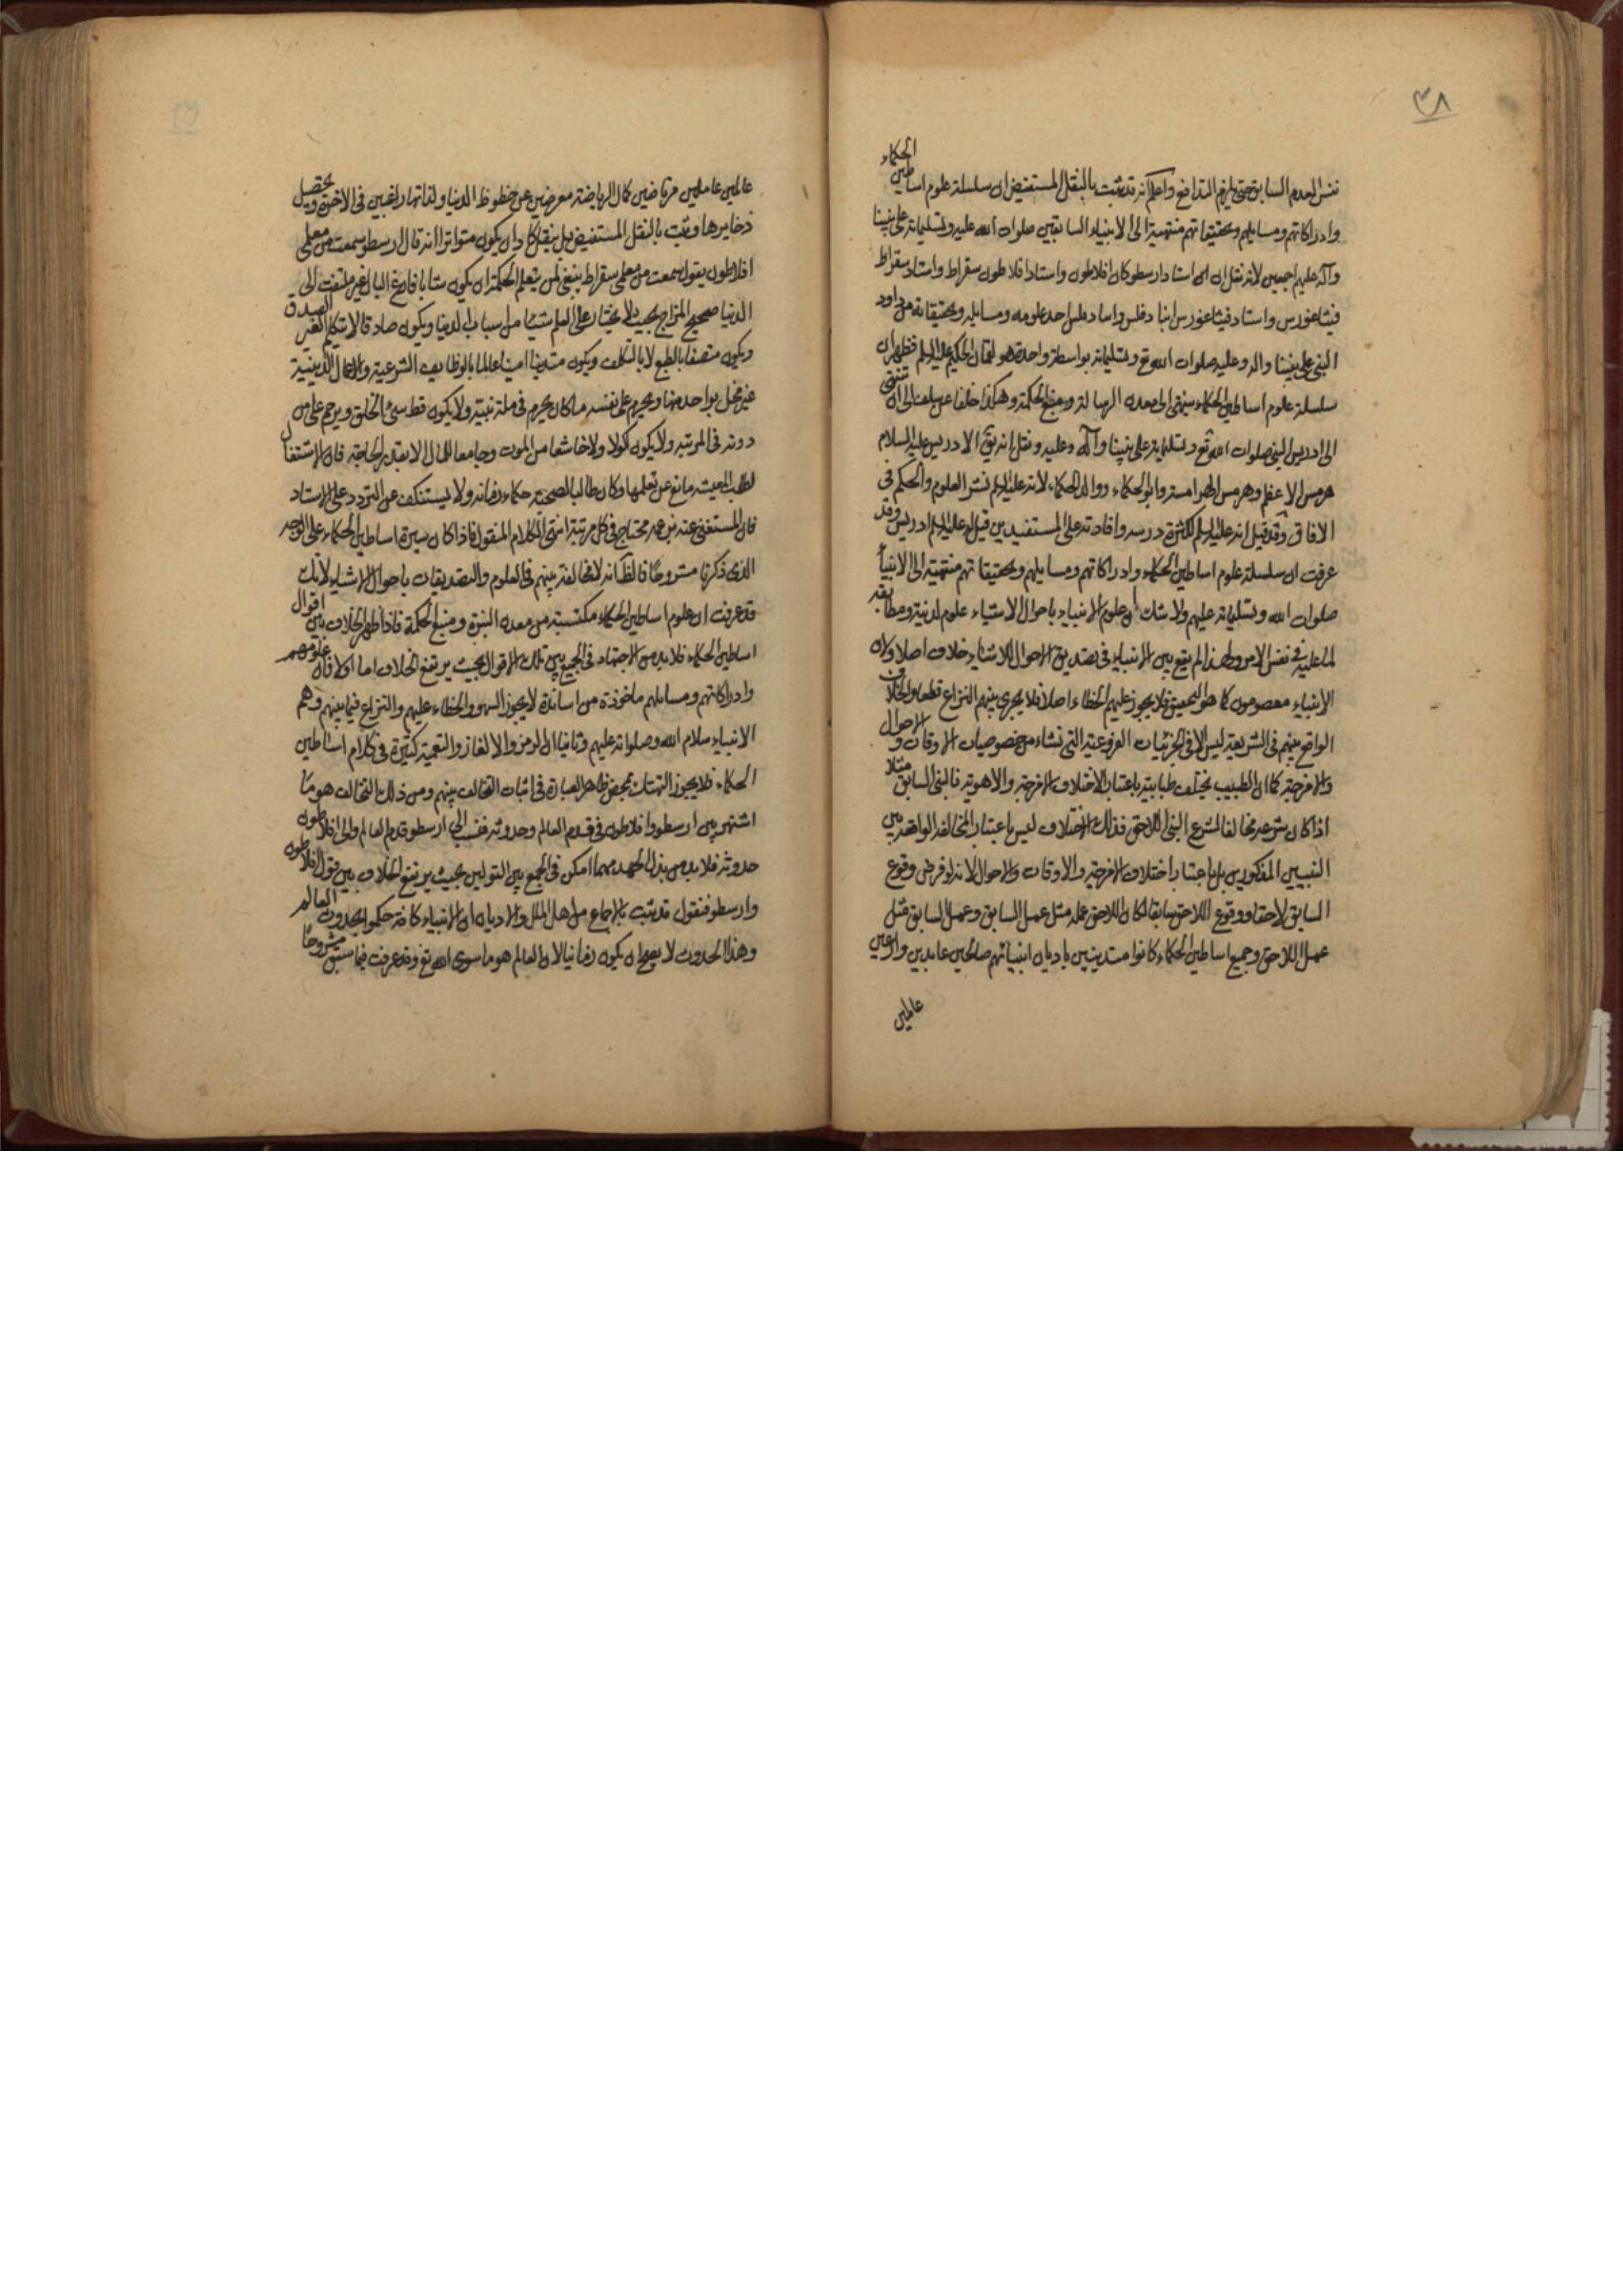 ٣٨
نفس العدم السابق حتى يلزم التدافع واعلم انه قد ثبت بالنقل المستفيض ان سلسلة علوم اساطين الحكماء
وادراكاتهم ومسايلهم وتحقيقاتهم منتهية الى الانبياء السابقين صلوات الله عليه وتسليماته على نبينا
وآله عليهم اجمعين لانه نقل ان استاد ارسطو كان افلاطون واستاد افلاطون سقراط واستاد سقراط
فيثاغورس واستاد فيثاغورس انبادقلس وانبادقلس اخذ علومه ومسايله وتحقيقاته من داود
النبي على نبينا واله وعليه صلوات الله تع وتسليماته بواسطة واحدة هو لقمان الحكيم عليه السلام فظهر ان
سلسلة علوم اساطين الحكماء ينتهى الى معدن الرسالة ومنبع الحكمة وهكذا خلفا عن سلف الى ان تنتهى
الى ادريس النبي صلوات الله تع وتسليماته على نبينا وآله وعليه ونقل انه يق لادريس عليه السلام
هرمس الاعظم وهرمس الهرامسة وابو الحكماء ووالد الحكماء لانه عليه السلم نشر العلوم والحكم فى
الافاق وقد قيل انه عليه السلم لكثرة درسه وافادته على المستفيدين قيل له عليه السلم ادريس وقد
عرفت ان سلسلة علوم اساطين الحكماء وادراكاتهم ومسايلهم وتحقيقاتهم منتهية الى الانبياء
صلوات الله وتسليماته عليهم ولا شك ان علوم الانبياء باحوال الاشياء علوم لدنية ومطابقة
لما عليه فى نفس الامر ولهذا لم يقع بين الانبياء فى تصديق الاحوال للاشياء خلاف اصلا ولان
الانبياء معصومون كما هو التحقيق فلا يجوز عليهم الخطاء اصلا فلا يجرى بينهم النزاع قطعا والخلاف
الواقع بينهم فى الشريعة ليس الا فى الجزئيات الفرعية التى نشاء من خصوصيات الاوقات والاحوال
والامزجة كما ان الطبيب يختلف طبابته باعتبار الاختلاف الامزجة والاهوية فالنبى السابق مثلا
اذا كان شرعه مخالفا لشرع النبى اللاحق فذلك الاختلاف ليس باعتبار المخالفة الواقعة بين
النبيين المذكورين بل باعتبار اختلاف الامزجة والاوقات والاحوال لانه لو فرض وقوع
السابق لاحقا ووقوع اللاحق سابقا لكان اللاحق عمله مثل عمل السابق وعمل السابق مثل
عمل اللاحق وجميع اساطين الحكماء كانوا متدينين باديان انبيائهم صالحين عابدين وارعين
عالمين
عالمين عاملين مرتاضين كمال الرياضة معرضين عن حظوظ الدنيا ولذاتها راغبين فى الاخرة وتحصيل
ذخايرها وثبت بالنقل المستفيض بل بنقل كاد ان يكون متواترا انه قال ارسطو سمعت من معلمى
افلاطون يقول سمعت من معلمى سقراط ينبغى لمن يتعلم الحكمة ان يكون شابا فارغ البال غير ملتفت الى
الدنيا صحيح المزاج بحيث لا يختار على العلم شيئا من اسباب الدنيا ويكون صادقا لا يتكلم الغير الصدق
ويكون متصفا بالطبع لا بالتكلف ويكون متدينا امينا عالما بالوظايف الشرعية والاعمال الدينية
غير مخل بواحد منها ويحرم على نفسه ما كان يحرم فى ملة نبيه ولا يكون قط سيئ الخلق ويرحم على من
دونه فى المرتبه ولا يكون اكولا ولا خاشعا من الموت وجامعا للمال الا بقدر الحاجة فان الاشتغال
لطلب المعيشه مانع عن تعلمها وكان طالبا لصحبة حكماء زمانه ولا يستنكف عن التردد على الاستاد
فان المستغنى عنه بزعمه محتاج فى كل مرتبة انتهى الكلام المنقول فاذا كان سيرة اساطين الحكماء على الوجه
الذى ذكرنا مشروحا فالظ انه لا مخالفة بينهم فى العلوم والتصديقات باحوال الاشياء لانك
قد عرفت ان علوم اساطين الحكماء مكتسبة من معدن النبوة ومنبع الحكمة فاذا ظهر الخلاف بين اقوال
اساطين الحكماء فلا بد من الاجتهاد فى الجمع بين تلك الاقوال بحيث يرتفع الخلاف اما اولا فان علومهم
وادراكاتهم ومسايلهم ماخوذة من اساتذة لا يجوز السهو والخطاء عليهم والنزاع فيما بينهم وهم
الانبياء سلام الله وصلواته عليهم وثانيا ان الرمز والالغاز والتعمية كثيرة فى كلام اساطين
الحكماء فلا يجوز التهتك بمحض ظاهر العبارة فى اثبات التخالف بينهم ومن ذلك التخالف هو ما
اشتهر بين ارسطو وافلاطون فى قدم العالم وحدوثه فنسب الى ارسطو قدم العالم والى افلاطون
حدوثه فلا بد من بذل الجهد مهما امكن فى الجمع بين القولين بحيث يرتفع الخلاف بين قول افلاطون
وارسطو فنقول قد ثبت بالاجماع من اهل الملل والاديان ان الانبياء كافة حكموا بحدوث العالم
وهذا الحدوث لا يصح ان يكون زمانيا لان العالم هو ما سوى الله تع وقد عرفت فيما سبق مشروحا